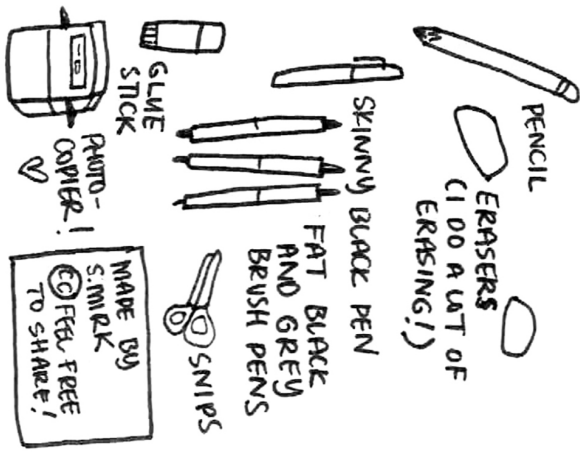 PENCIL
ERASERS
(I DO A LOT OF
ERASING!)
SKINNY BLACK PEN
FAT BLACK
AND GREY
BRUSH PENS
GLUE
STICK
SNIPS
PHOTO-
COPIER!
MADE BY
S.MIRK
(cc) FEEL FREE
TO SHARE!